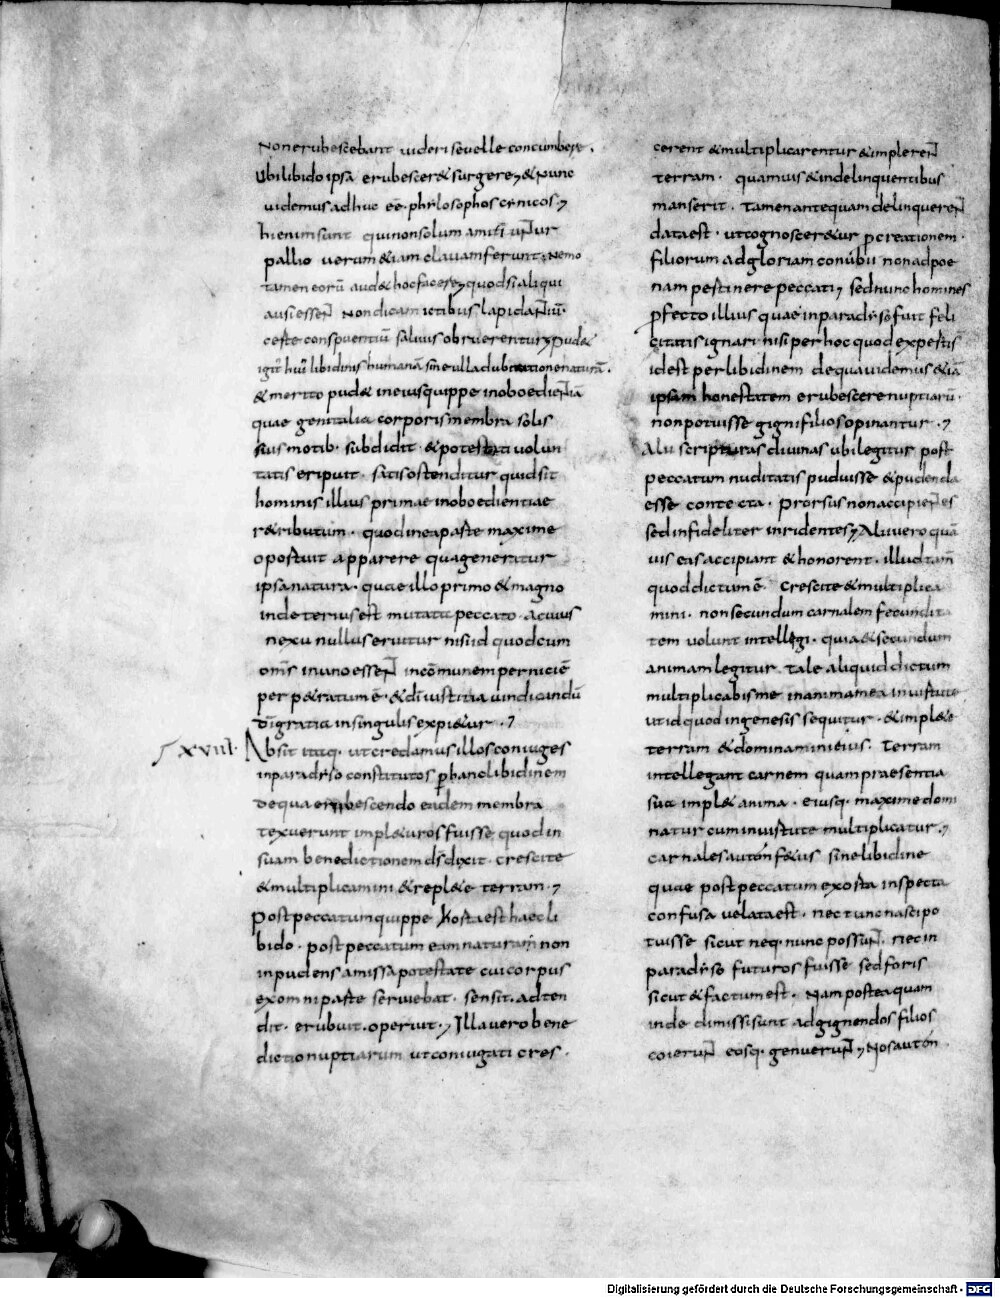 Nonerubescebant uideri seuelle concumbere.
Ubi libido ipsa erubescer& surgere; & nunc
uidemus adhuc eē philosophos cynicos;
hi enim sunt qui non solum amiciunt̄ur
pallio uerum & iam clauam ferunt. Nemo
tamen eorū aud& hoc facere; quod si aliqui
ausi essen̄t non dicam ictibus lapidan̄tiū.
certe conspuentiū saliuis obruerentur; Pud&
igit̄ hui᾽ libidinis humanā sine ulla dubitatione naturā.
& merito pud& in eius quippe inoboedien̄tia
quae genitalia corporis membra solis
suis motib· subdidit & potestati uolun
tatis eripuit. satis ostenditur quid sit
hominis illius primae inoboedientiae
r&ributum. quod in ea parte maxime
oportuit apparere qua generatur
ipsa natura. quae illo primo & magno
in deterius est mutata peccato. a cuius
nexu nullus eruitur nisi id quod cum
om̄s in uno essen̄t in cōmunem perniciē
perp&ratum ē. & dī iustitia uindicandū
dī gratia in singulis expi&ur.;
xviiii. Absit itaq· ut credamus illos coniuges
in paradyso constitutos p̄ hanc libidinem
de qua erubescendo eadem membra
texuerunt impl&uros fuisse quod in
suam benedictionem d̄s dixit. crescite
& multiplicamini & repl&e terram.;
post peccatum quippe horta est haec li
bido. post peccatum eam naturam non
inpudens amissa potestate cui corpus
ex omni parte seruiebat. sensit. adten
dit. erubuit. operuit.; Illa uero bene
dictio nuptiarum ut coniugati cres.
cerent & multiplicarentur & implerēn̄t
terram. quamuis & in delinquentibus
manserit. Tamen antequam delinqueren̄t
data est. ut cognoscer&ur p̄creationem.
filiorum ad gloriam conubii non ad poe
nam pertinere peccati; sed nunc homines
p̄fecto illius quae in paradyso fuit feli
citatis ignari. nisi per hoc quod expertis
id est per libidinem de qua uidemus & iā
ipsam honestatem erubescere nuptiarū.
non potuisse gigni filios opinantur.;
Alii scripturas diuinas ubi legitur post
peccatum nuditatis puduisse & pudenda
esse contecta. prorsus non accipien̄tes
sed infideliter inridentes; Alii uero quā
uis eas accipiant & honorent. illud tam̄
quod dictum ē. Crescite & multiplica
mini. non secundum carnalem fecundita
tem uolunt intellegi. quia & secundum
animam legitur. tale aliquid dictum
multiplicabis me in anima mea in uirtute
ut id quod in genesis sequitur. & impl&e
terram & dominamini eius. Terram
intellegant carnem quam praesentia
sua impl& anima. eiusq· maxime domi
natur cum in uirtute multiplicatur.;
carnales autem f&us sine libidine
quae post peccatum exorta inspecta
confusa uelata est. nec tunc nasci po
tuisse sicut neq· nunc possun̄t. nec in
paradyso futuros fuisse sed foris
sicut & factum est. Nam postea quam
inde dimissi sunt ad gignendos filios
coierun̄t eosq· genuerun̄t; Nos autem